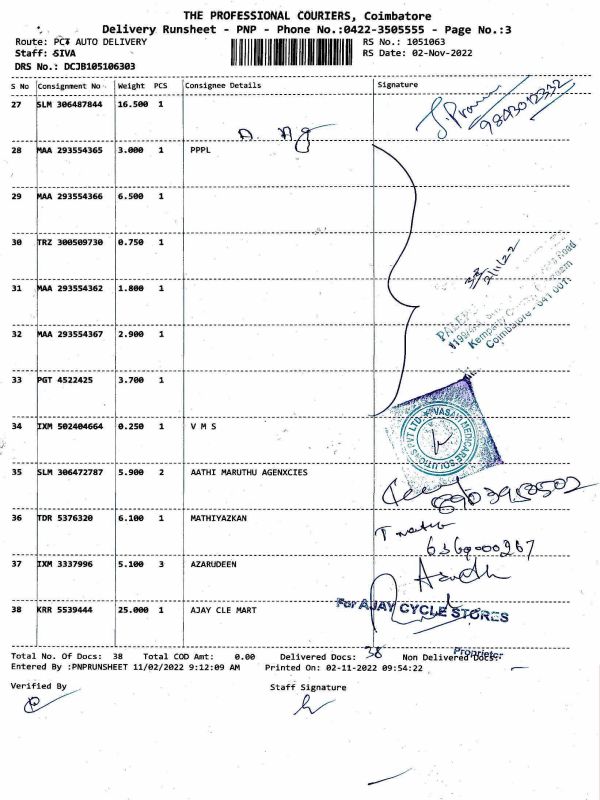 THE PROFESSIONAL COURIERS, Coimbatore
Delivery Runsheet - PNP - Phone No.:0422-3505555 - Page No.:3
Route: PCT AUTO DELIVERY RS No.: 1051063
Staff: SIVA RS Date: 02-Nov-2022
DRS No.: DCJB105106303
S No Consignment No Weight PCS Consignee Details Signature
27 SLM 306487844 16.500 1
28 MAA 293554365 3.000 1 PPPL
29 MAA 293554366 6.500 1
30 TRZ 300509730 0.750 1
31 MAA 293554362 1.800 1
32 MAA 293554367 2.900 1
33 PGT 4522425 3.700 1
34 IXM 502404664 0.250 1 V M S
35 SLM 306472787 5.900 2 AATHI MARUTHU AGENXCIES
36 TDR 5376320 6.100 1 MATHIYAZKAN
6369000267
37 IXM 3337996 5.100 3 AZARUDEEN
38 KRR 5539444 25.000 1 AJAY CLE MART
For AJAY CYCLE STORES
Proprietor
Total No. Of Docs: 38 Total COD Amt: 0.00 Delivered Docs: 38 Non Delivered Docs:
Entered By :PNPRUNSHEET 11/02/2022 9:12:09 AM Printed On: 02-11-2022 09:54:22
Verified By Staff Signature